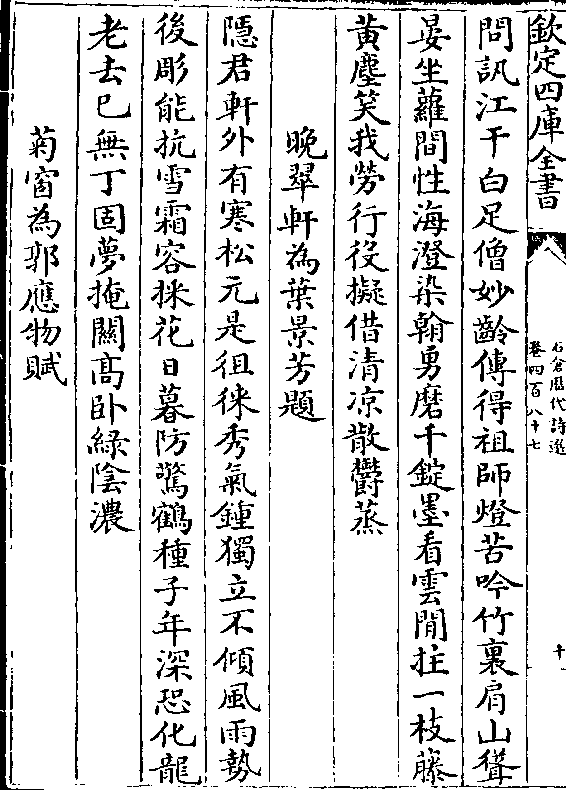 欽定四庫全書
石倉歷代詩選
卷四百八十七
十
問訊江干白足僧妙齡傳得祖師燈苦吟竹裏肩山聳
晏坐蘿間性海澄染翰勇磨千錠墨看雲閒拄一枝藤
黃塵笑我勞行役擬借清凉散鬱蒸
晚翠軒為葉景芳題
隱君軒外有寒松元是徂徠秀氣鍾獨立不傾風雨勢
後彫能抗雪霜容採花日暮防驚鶴種子年深恐化龍
老去已無丁固夢掩關高卧緑陰濃
菊窗為郭應物賦